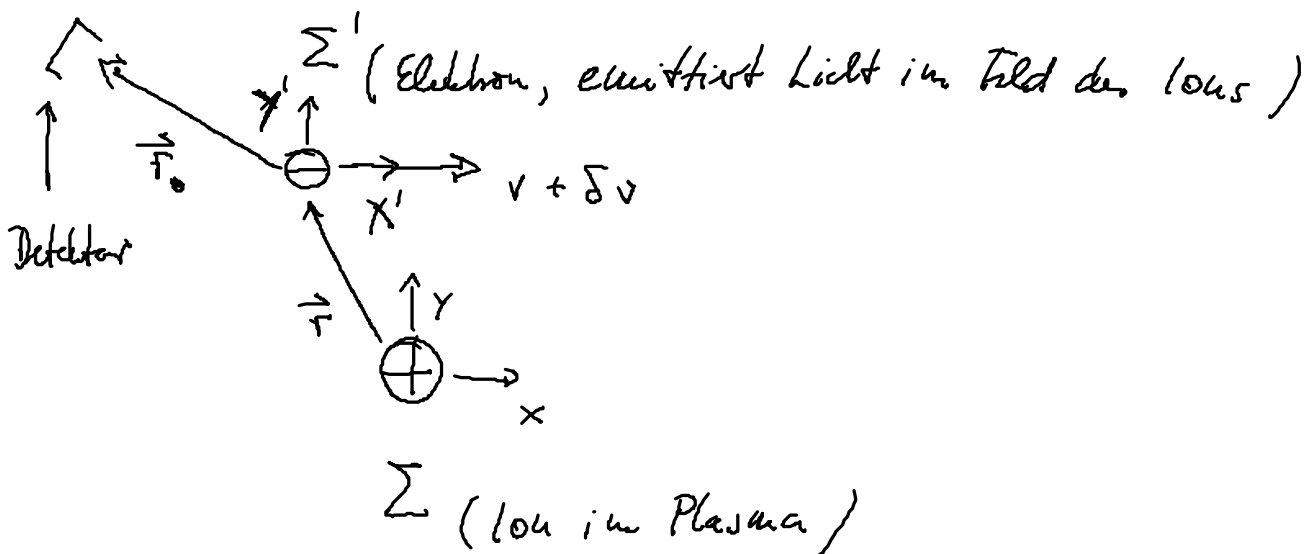 Σ' (Elektron, emittiert Licht im Feld des Ions)
y'
r₀
x'
v + δv
Detektor
r
y
x
Σ (Ion im Plasma)